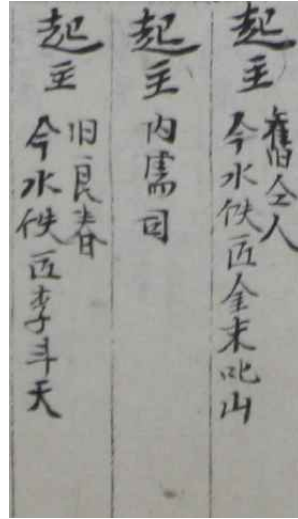 起主
舊仝人
今水佚匠金末叱山
起主
内需司
起主
旧良春
今水佚匠李斗天